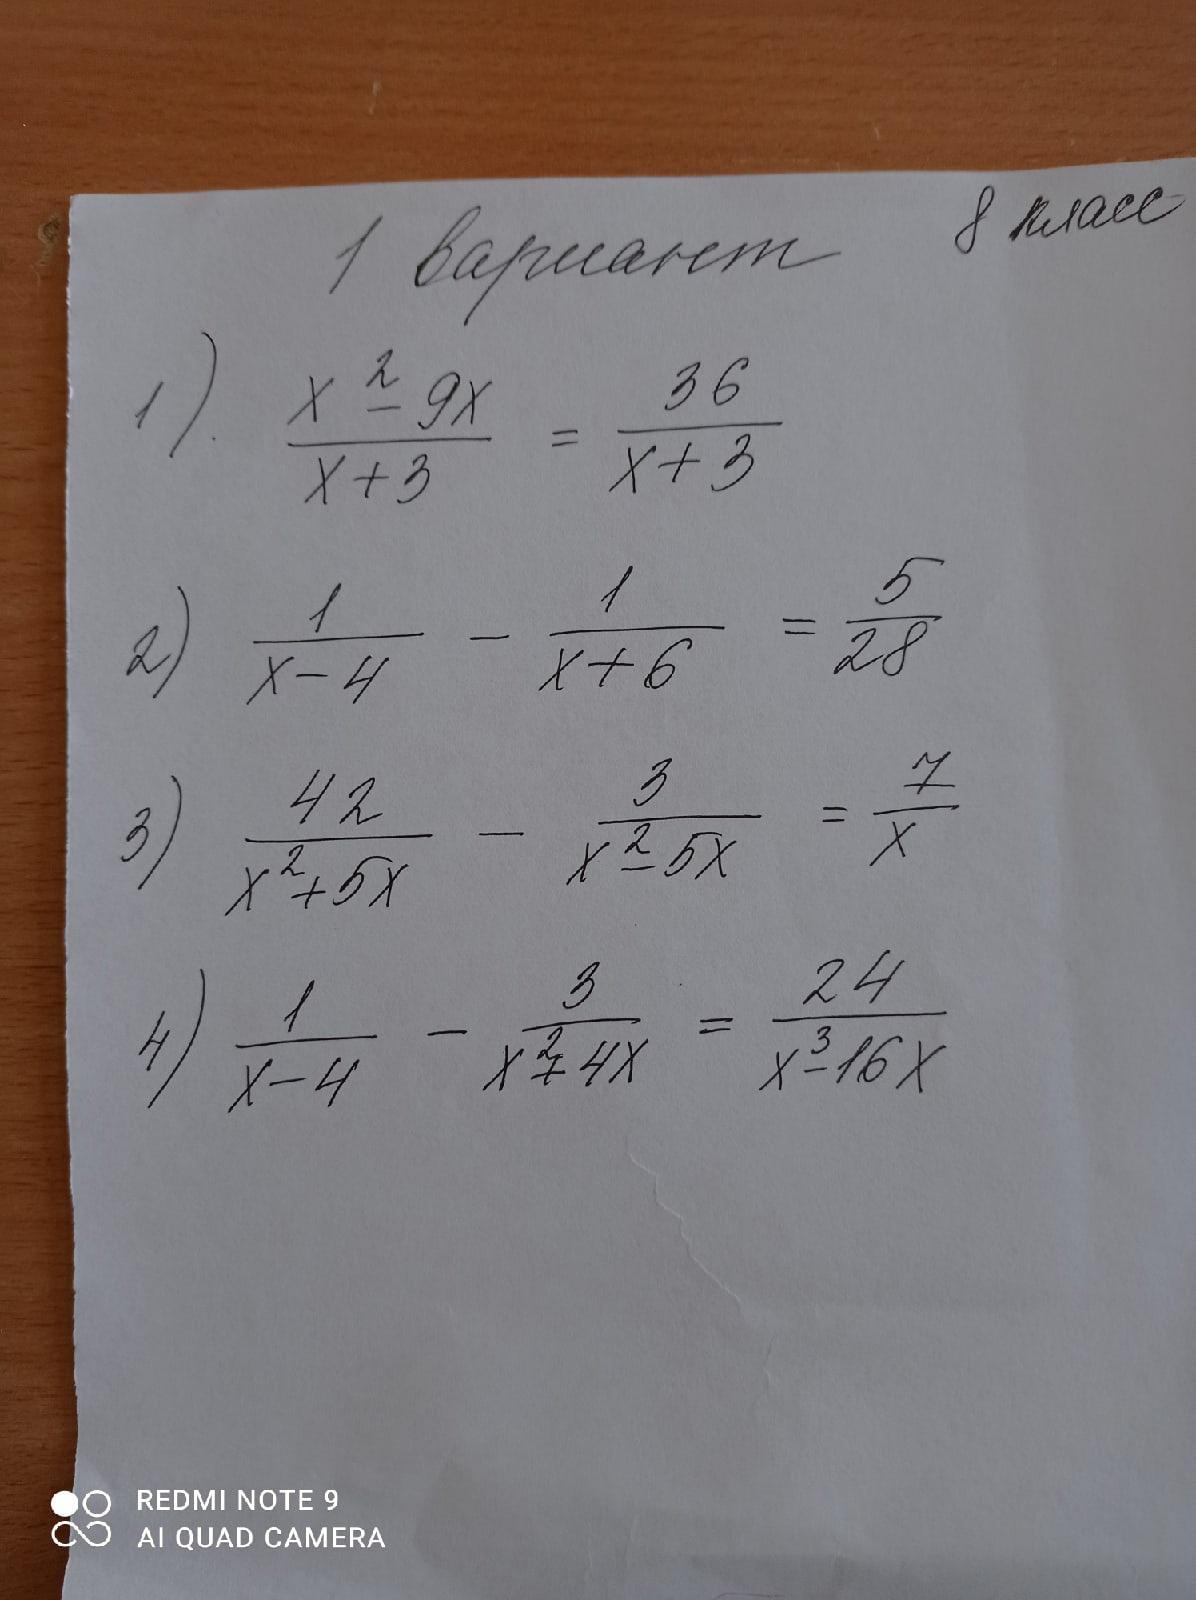 1 вариант 8 класс
1). (x² - 9x)/(x + 3) = 36/(x + 3)
2) 1/(x - 4) - 1/(x + 6) = 5/28
3) 42/(x² + 5x) - 3/(x² - 5x) = 7/x
4) 1/(x - 4) - 3/(x² + 4x) = 24/(x³ - 16x)
REDMI NOTE 9
AI QUAD CAMERA